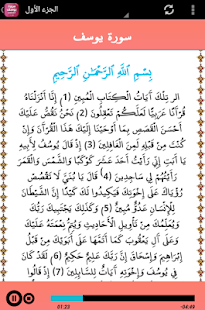 الجزء الأول
سورة يوسف
بِسْمِ اللَّهِ الرَّحْمَٰنِ الرَّحِيمِ
الر تِلْكَ آيَاتُ الْكِتَابِ الْمُبِينِ (1) إِنَّا أَنْزَلْنَاهُ
قُرْآنًا عَرَبِيًّا لَعَلَّكُمْ تَعْقِلُونَ (2) نَحْنُ نَقُصُّ عَلَيْكَ
أَحْسَنَ الْقَصَصِ بِمَا أَوْحَيْنَا إِلَيْكَ هَذَا الْقُرْآنَ وَإِنْ
كُنْتَ مِنْ قَبْلِهِ لَمِنَ الْغَافِلِينَ (3) إِذْ قَالَ يُوسُفُ لِأَبِيهِ
يَا أَبَتِ إِنِّي رَأَيْتُ أَحَدَ عَشَرَ كَوْكَبًا وَالشَّمْسَ وَالْقَمَرَ
رَأَيْتُهُمْ لِي سَاجِدِينَ (4) قَالَ يَا بُنَيَّ لَا تَقْصُصْ
رُؤْيَاكَ عَلَى إِخْوَتِكَ فَيَكِيدُوا لَكَ كَيْدًا إِنَّ الشَّيْطَانَ
لِلْإِنْسَانِ عَدُوٌّ مُبِينٌ (5) وَكَذَلِكَ يَجْتَبِيكَ رَبُّكَ
وَيُعَلِّمُكَ مِنْ تَأْوِيلِ الْأَحَادِيثِ وَيُتِمُّ نِعْمَتَهُ عَلَيْكَ
وَعَلَى آلِ يَعْقُوبَ كَمَا أَتَمَّهَا عَلَى أَبَوَيْكَ مِنْ قَبْلُ
إِبْرَاهِيمَ وَإِسْحَاقَ إِنَّ رَبَّكَ عَلِيمٌ حَكِيمٌ (6) لَقَدْ كَانَ
فِي يُوسُفَ وَإِخْوَتِهِ آيَاتٌ لِلسَّائِلِينَ (7) إِذْ قَالُوا
01:23
-04:49